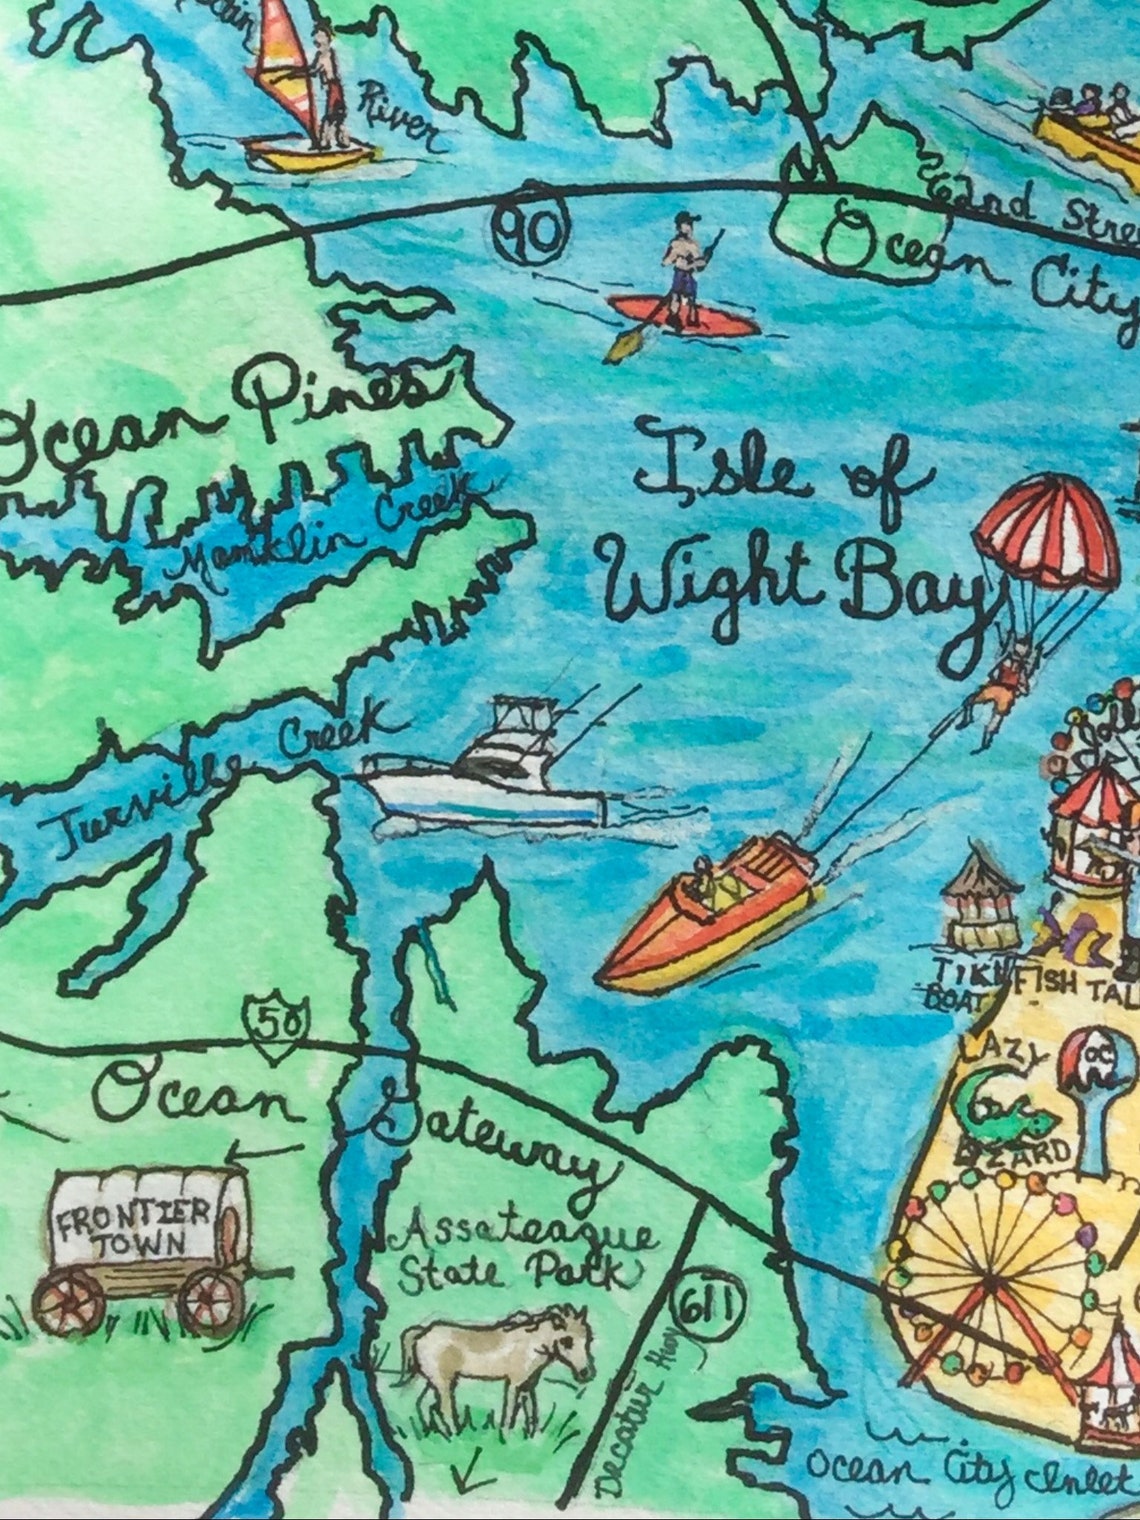 River
90
62nd Stre
Ocean City
Ocean Pines
Manklin Creek
Isle of
Wight Bay
Turville Creek
TIKI
BOAT
FISH TAL
LAZY
LIZARD
OC
50
Ocean Gateway
FRONTIER
TOWN
Assateague
State Park
611
Decatur Hwy
Ocean City Inlet